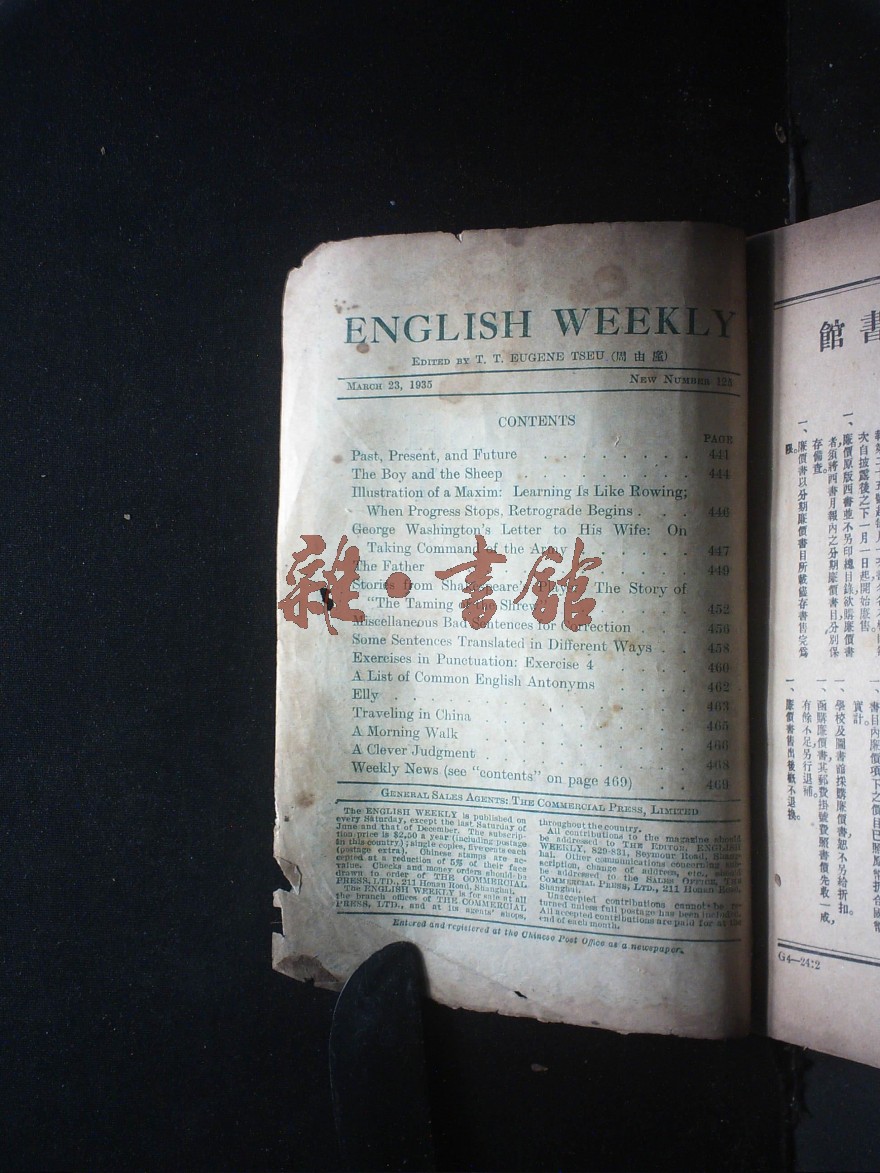 ENGLISH WEEKLY
EDITED BY T. T. EUGENE TSEU (周由廑)
MARCH 23, 1935 NEW NUMBER 125
CONTENTS
PAGE
Past, Present, and Future 441
The Boy and the Sheep 444
Illustration of a Maxim: Learning Is Like Rowing;
When Progress Stops, Retrograde Begins 446
George Washington's Letter to His Wife: On
Taking Command of the Army 447
The Father 449
Stories from Shakespeare's Plays: The Story of
"The Taming of the Shrew" 452
Miscellaneous Bad Sentences for Correction 456
Some Sentences Translated in Different Ways 458
Exercises in Punctuation: Exercise 4 460
A List of Common English Antonyms 462
Elly 463
Traveling in China 465
A Morning Walk 466
A Clever Judgment 468
Weekly News (see "contents" on page 469) 469
GENERAL SALES AGENTS: THE COMMERCIAL PRESS, LIMITED
The ENGLISH WEEKLY is published on
every Saturday, except the last Saturday of
June and that of December. The subscrip-
tion price is $2.50 a year (including postage
in this country); single copies, five cents each
(postage extra). Chinese stamps are ac-
cepted at a reduction of 5% of their face
value. Checks and money orders should be
drawn to order of THE COMMERCIAL
PRESS, LTD., 211 Honan Road, Shanghai.
The ENGLISH WEEKLY is for sale at all
the branch offices of THE COMMERCIAL
PRESS, LTD., and at its agents' shops,
throughout the country.
All contributions to the magazine should
be addressed to THE EDITOR, ENGLISH
WEEKLY, 829-831, Seymour Road, Shang-
hai. Other communications concerning sub-
scription, change of address, etc., should
be addressed to the SALES OFFICE, THE
COMMERCIAL PRESS, LTD., 211 Honan Road,
Shanghai.
Unaccepted contributions cannot be re-
turned unless full postage has been included.
All accepted contributions are paid for at the
end of each month.
Entered and registered at the Chinese Post Office as a newspaper.
雜·書館
書館
次自披露後之下一月一日起開始廉售。
一、廉價原版西書並不另印總目錄欲購廉價書
者須將西書月報內之分期廉價書目分別保
存備查。
一、廉價書以分期廉價書目所載僅存書售完為
限。
實計。
一、學校及圖書館採購廉價書恕不另給折扣。
一、函購廉價書其郵費掛號費照書價先收一成,
有餘不足另行退補。
一、廉價書售出後概不退換。
G4—24:2